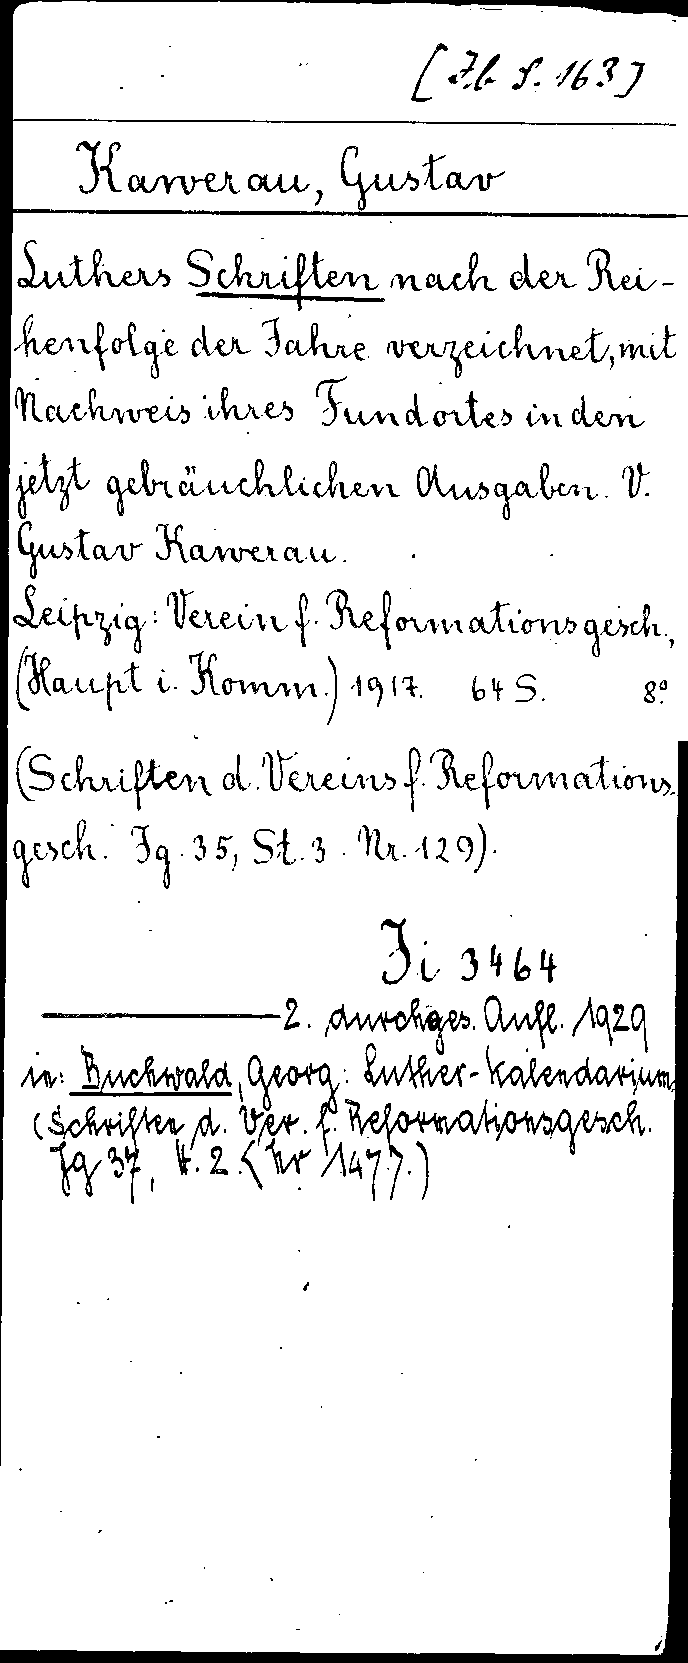 [Zb S. 163]
Kawerau, Gustav
Luthers Schriften nach der Rei-
henfolge der Jahre verzeichnet, mit
Nachweis ihres Fundortes in den
jetzt gebräuchlichen Ausgaben. V.
Gustav Kawerau.
Leipzig: Verein f. Reformationsgesch.,
(Haupt i. Komm.) 1917. 64 S. 8º
(Schriften d. Vereins f. Reformations-
gesch. Jg. 35, St. 3. Nr. 129).
Ji 3464
——— 2. durchges. Aufl. 1929
in: Buchwald, Georg: Luther-Kalendarium.
(Schriften d. Ver. f. Reformationsgesch.
Jg 37, H. 2. (Nr 147.).)